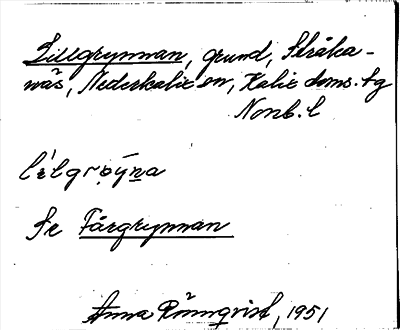 Lillgrynnan, grund, Stråka-
näs, Nederkalix sn, Kalix doms. tg
Nonb. l
lìlgrøýna
Se Fårgrynnan
Anna Rönnqvist, 1951